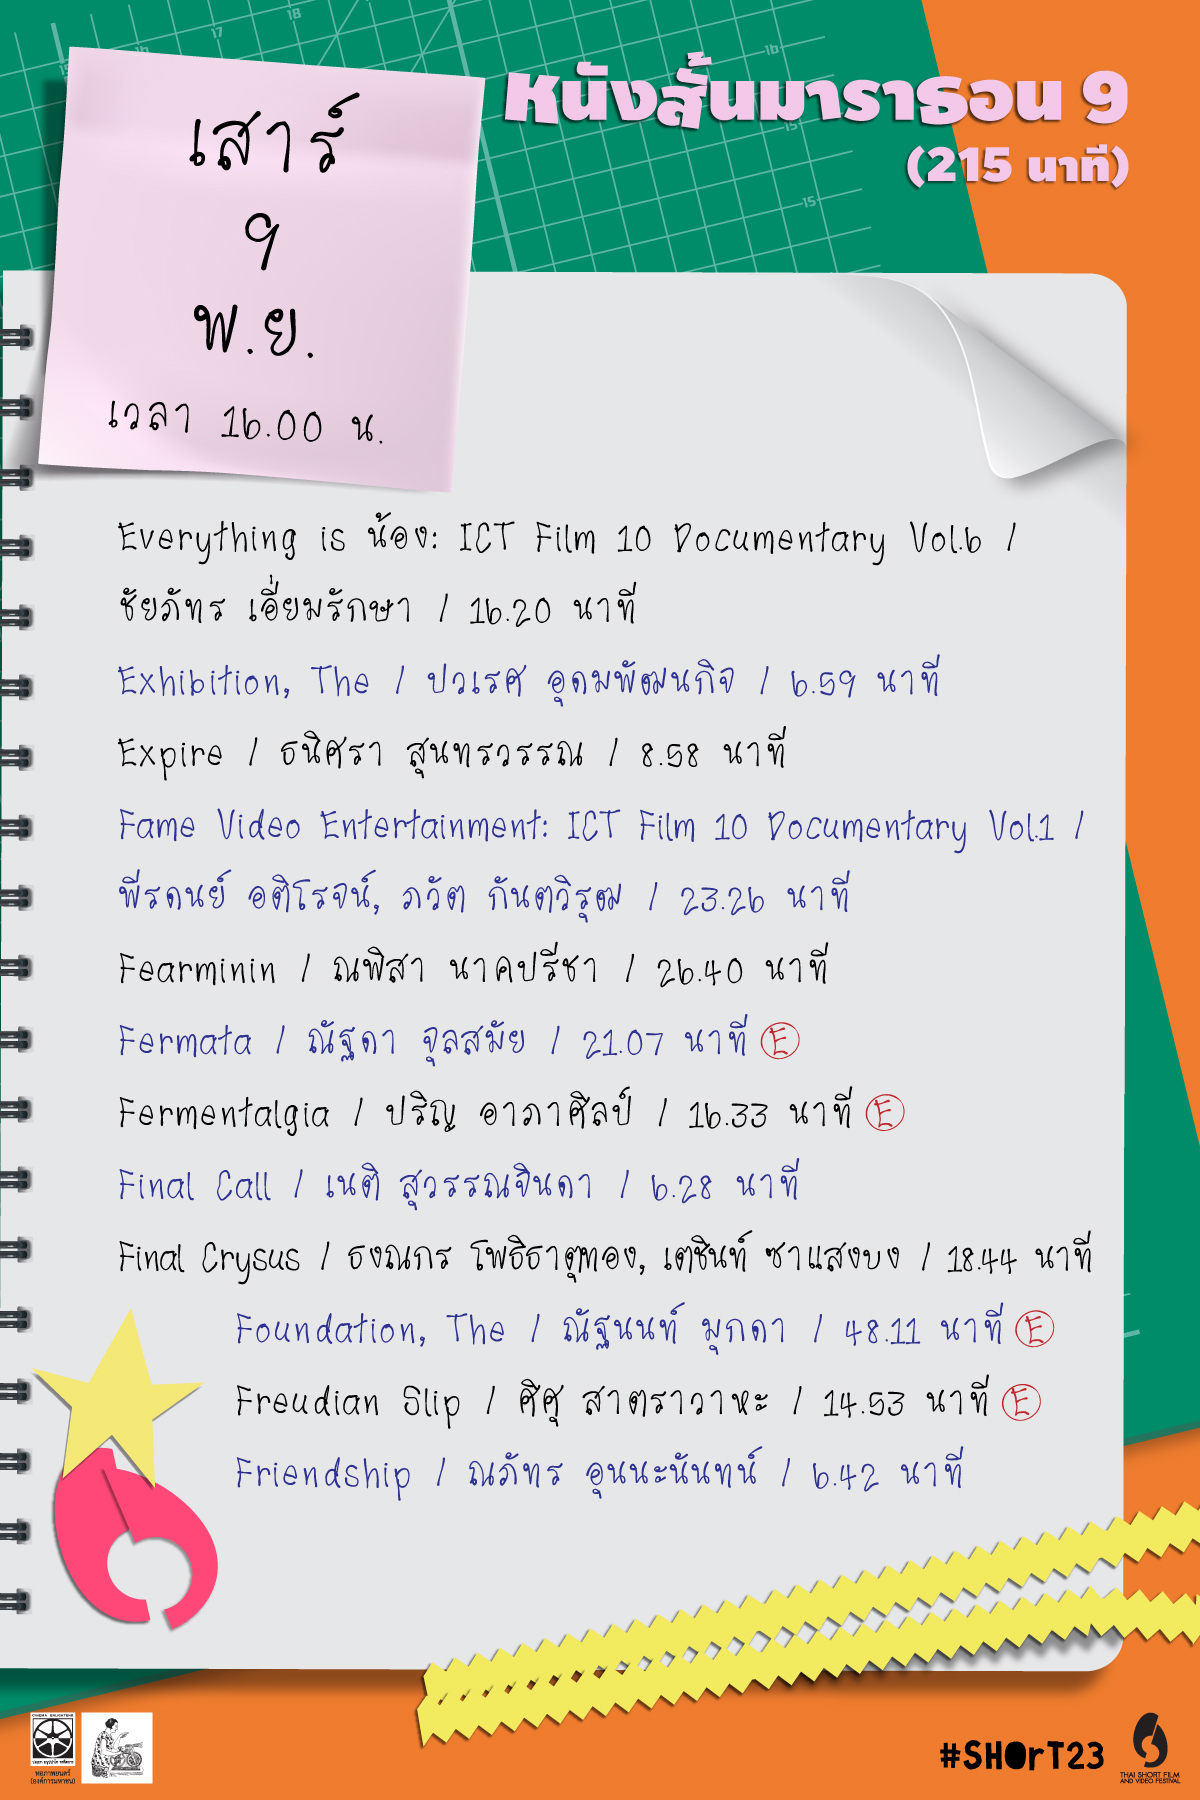 หนังสั้นมาราธอน 9
(215 นาที)
เสาร์
9
พ.ย.
เวลา 16.00 น.
Everything is น้อง: ICT Film 10 Documentary Vol.6 /
ชัยภัทร เอี่ยมรักษา / 16.20 นาที
Exhibition, The / ปวเรศ อุดมพัฒนกิจ / 6.59 นาที
Expire / ธนิศรา สุนทรวรรณ / 8.58 นาที
Fame Video Entertainment: ICT Film 10 Documentary Vol.1 /
พีรดนย์ อติโรจน์, ภวัต กันตวิรุฒ / 23.26 นาที
Fearminin / ณพิสา นาคปรีชา / 26.40 นาที
Fermata / ณัฐดา จุลสมัย / 21.07 นาที E
Fermentalgia / ปริญ อาภาศิลป์ / 16.33 นาที E
Final Call / เนติ สุวรรณจินดา / 6.28 นาที
Final Crysus / ธงณกร โพธิธาตุทอง, เตชินท์ ซาแสงบง / 18.44 นาที
Foundation, The / ณัฐนนท์ มุกดา / 48.11 นาที E
Freudian Slip / ศิศุ สาตราวาหะ / 14.53 นาที E
Friendship / ณภัทร อุนนะนันทน์ / 6.42 นาที
CINEMA ENLIGHTENS
หอภาพยนตร์
(องค์การมหาชน)
#SHOrT23
THAI SHORT FILM
AND VIDEO FESTIVAL